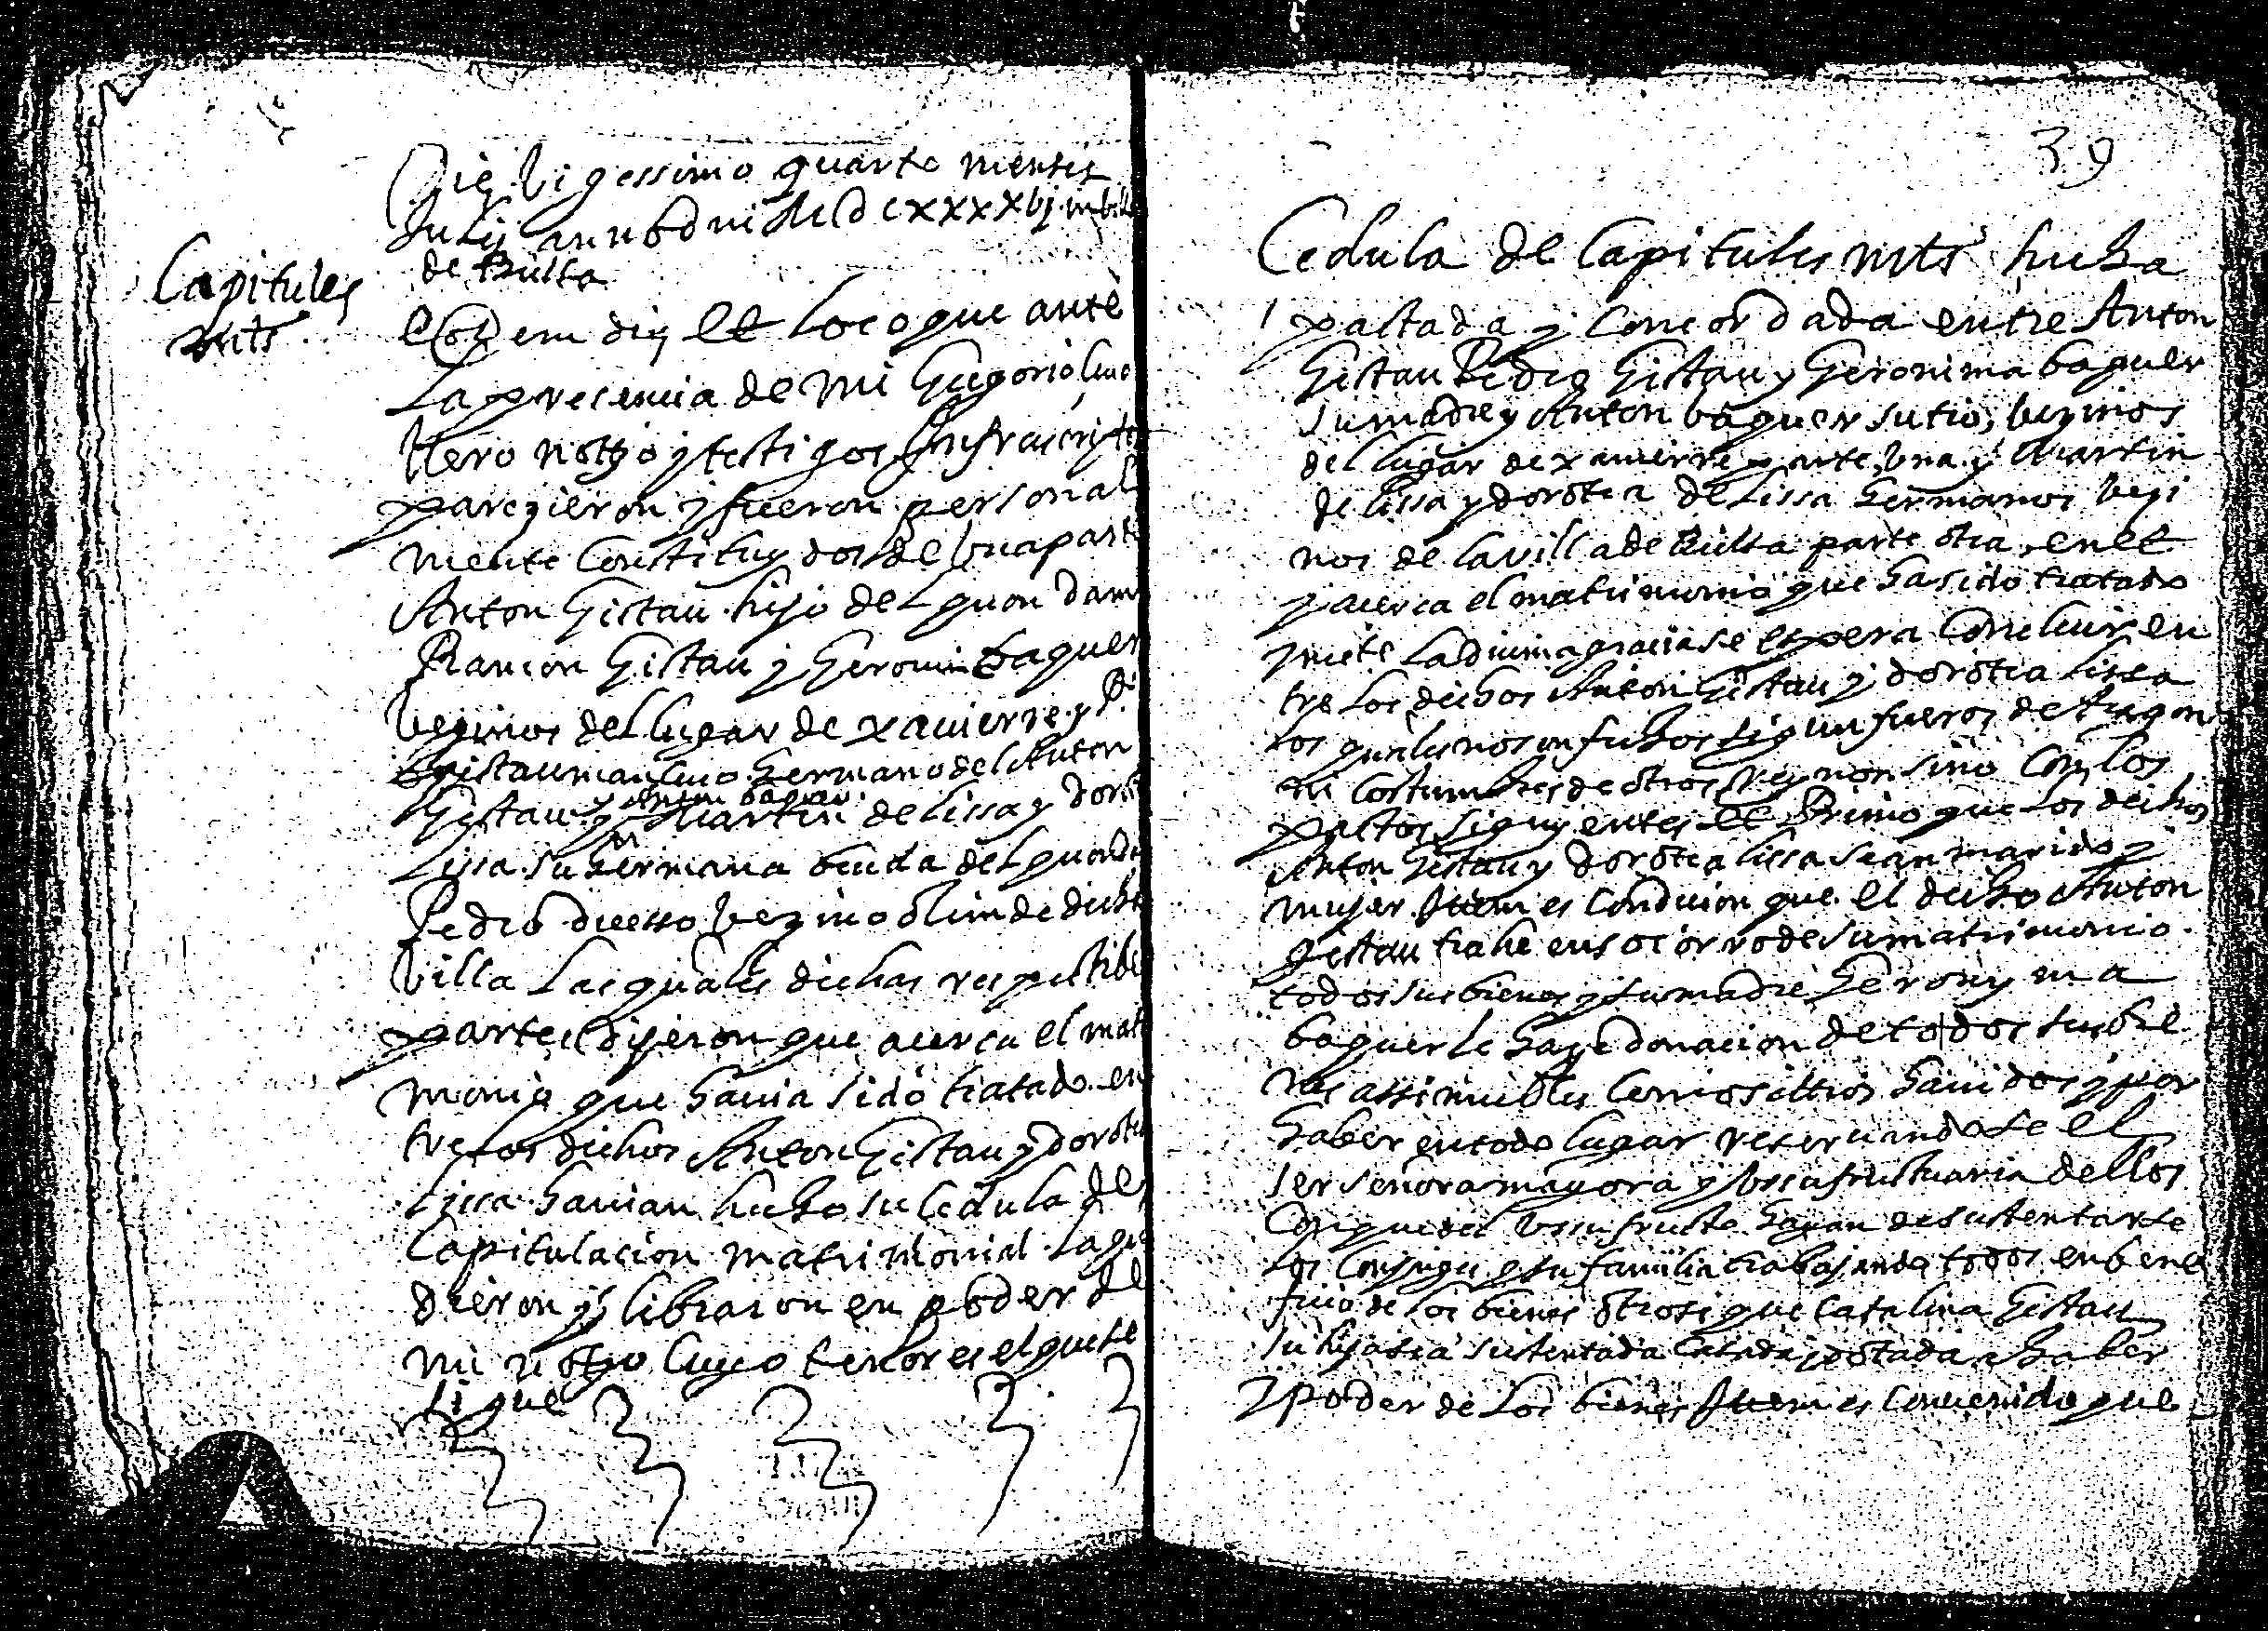 Die Vigessimo quarto mensis
July anno dni MDCXXXXVj in villa
de Bulta
Capitules
mts
eodem die et Loco que ante
La presencia de mi Gregorio
nottio y testigos Infrascriptos
parezieron y fueron personal
mente Constituydos de una parte
Anton Gistau hijo del quondam
Ramon Gistau y Geronima baquer
vezinos del lugar de xavierre y P.
Gistau mancevo hermano del Anton
Gistau y Anton baquer
y Martin de Lissa y dorotea
Lissa su hermana viuda del quondam
Pedro vezino olim de dicha
villa Las quales dichas respectibe
partes dijeron que acerca el matri
monio que havia sido tratado en
tre los dichos Anton Gistau y dorotea
Lissa havian hecho su Cedula de
Capitulacion matrimonial La qual
dieron y libraron en poder de
mi nottio Cuyo tenor es el que se
sigue
39
Cedula de Capitules mts hecha
pactada y Concordada entre Anton
Gistau Pedro Gistau y Geronima baquer
su madre y Anton baquer su tio, vezinos
del lugar de xavierre parte una y Martin
de lissa y dorotea de Lissa hermanos vezi
nos de la villa de Bulta parte otra, en et
y acerca el matrimonio que ha sido tratado
y mete La divina gracia se espera Concluir en
tre Los dichos Anton Gistau y dorotea lissa
Los quales no son fechos sigun fueros de Aragon
ni Costumbres de otros Reynos sino Con los
pactos siguyentes et Primo que los dichos
Anton Gistau y Dorotea lissa sean marido y
mujer. Item es Condicion que el dicho Anton
gistau trahe en socorro de su matrimonio
todos sus bienes y su madre Geronyma
baquer le haze donacion de todos sus bie
nes assi muebles Como sittios havidos y por
haber en todo lugar reservandose el
ser señora mayora y ussufructuaria dellos
Con que del ussufructo hayan de sustentarse
Los Conjuges y su familia trabajando todos en bene
ficio de los bienes otrosi que Catalina Gistau
su hija sea sustentada Casada y dotada a haber
y poder de Los bienes Item es Convenido que